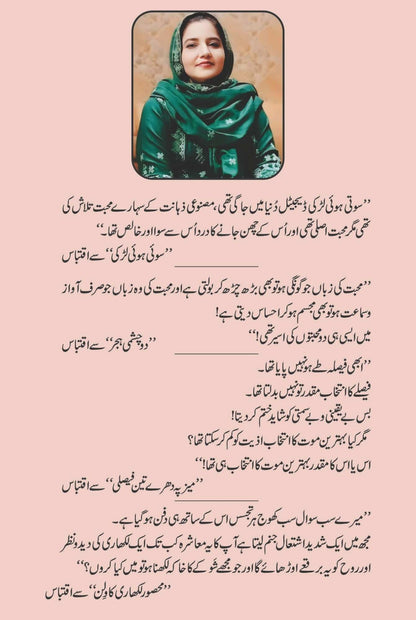 ’’سوتی ہوئی لڑکی ڈیجیٹل دُنیا میں جاگی تھی، مصنوعی ذہانت کے سہارے محبت تلاش کی
تھی مگر محبت اصلی تھی اور اُس کے چھن جانے کا درد اُس سے سوا اور خالص تھا۔‘‘
’’سوئی ہوئی لڑکی‘‘ سے اقتباس
’’محبت کی زباں جو گونگی ہو تو بھی بڑھ چڑھ کر بولتی ہے اور محبت کی وہ زباں جو صرف آواز
و سماعت ہو تو بھی مجسم ہو کر احساس دیتی ہے!
میں ایسی ہی دو محبتوں کی اسیر تھی!‘‘
’’دو چشمی ہجر‘‘ سے اقتباس
’’ابھی فیصلہ طے ہو نہیں پایا تھا۔
فیصلے کا انتخاب مقدر تو نہیں بدلتا تھا۔
بس بے یقینی و بے سمتی کو شاید ختم کر دیتا!
مگر کیا بہترین موت کا انتخاب اذیت کو کم کر سکتا تھا؟
اس یا اس کا مقدر بہترین موت کا انتخاب ہی تھا!‘‘
’’میز پہ دھرے تین فیصلے‘‘ سے اقتباس
’’میرے سب سوال سب کھوج ہر تجسس اس کے ساتھ ہی دفن ہو گیا ہے۔
مجھ میں ایک شدید اشتعال جنم لیتا ہے آپ کا یہ معاشرہ کب تک ایک لکھاری کی دید و نظر
اور روح کو یہ برقعے اوڑھائے گا اور جو مجھے شو کے کا خاکہ لکھنا ہو تو میں کیا کروں؟‘‘
’’محصور لکھاری کا ولن‘‘ سے اقتباس